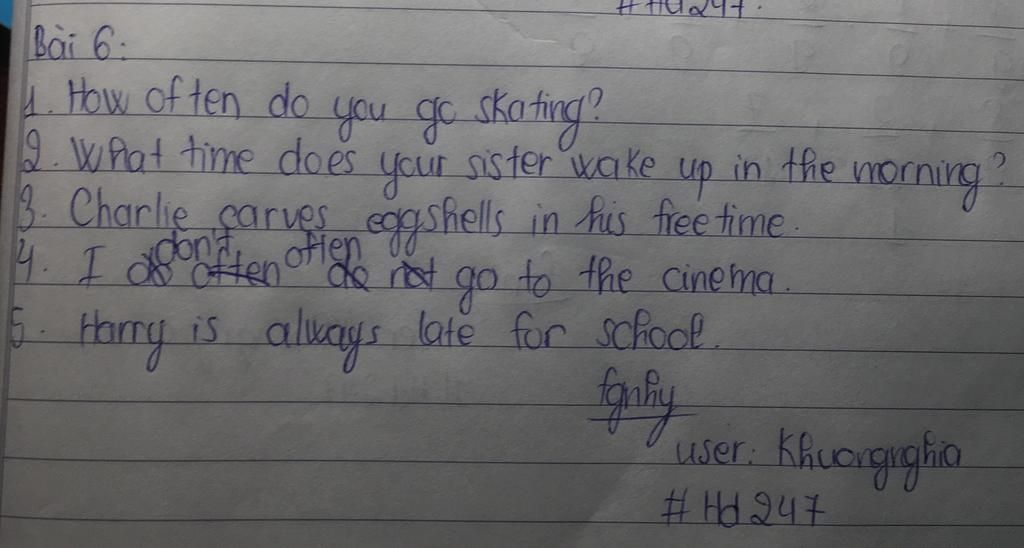 #Hd247.
Bài 6:
1. How often do you go skating?
2. What time does your sister wake up in the morning?
3. Charlie carves eggshells in his free time.
4. I don't often go to the cinema.
5. Harry is always late for school.
fgnhy
user: Khuongnghia
#Hd247